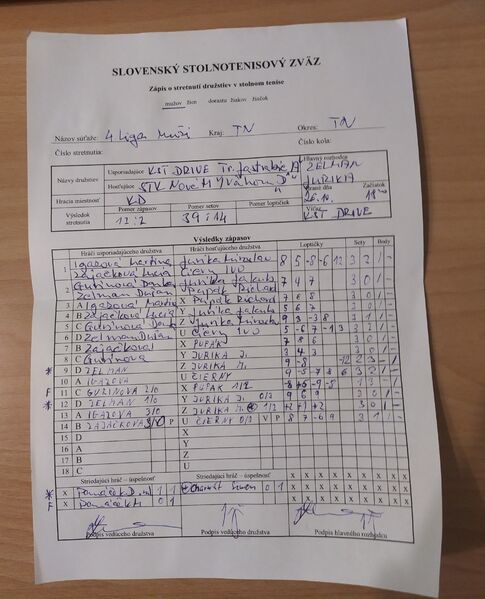 SLOVENSKÝ STOLNOTENISOVÝ ZVÄZ
Zápis o stretnutí družstiev v stolnom tenise
mužov žien dorastu žiakov žiačok
Názov súťaže: 4 Liga Muži Kraj: TN Okres: TN
Číslo stretnutia: Číslo kola:
Názvy družstiev Usporiadajúce KST DRIVE Tr. Jastrabie A Hlavný rozhodca ZELMAN
Hosťujúce STK Nové M n Váhom D JURIKA
Hracia miestnosť KD Hrané dňa 26.10. Začiatok
Výsledok stretnutia Pomer zápasov 12:2 Pomer setov 39:14 Pomer loptičiek Víťaz KST DRIVE
Výsledky zápasov
Hráči usporiadajúceho družstva Hráči hosťujúceho družstva Loptičky Sety Body
1 Igazová Martina Jurika Miroslav 8 5 -8 -6 12 3 2 1 -
Zajačková Lucia Čierny IVO
2 Gurínová Jurika Jakub 7 4 7 3 0 1 -
Zelman Dušan Pupák Richard
3 A Igazová Martina X Pupák Richard 7 6 8 3 0 1 -
4 B Zajačková Lucia Y Jurika Jakub 5 6 7 3 0 1 -
5 C Gurínová Z Jurika Miroslav 9 3 -3 8 3 1 1 -
6 D Zelman Dušan U Čierny IVO 5 -6 -7 -1 3
7 B Zajačková X PUPÁK 7 8 6 3 0 1 -
8 C Gurínová Y JURIKA J. 3 4 3 3 0 1 -
9 D ZELMAN Z JURIKA M. 9 -8
10 A IGAZOVÁ U ČIERNY 9 -5 -7 8 6 3 2 1 -
11 C GURÍNOVÁ 2/0 X PUPÁK 1/2 -8 +6 -9 -8 1 3 - 1
12 D ZELMAN 1/0 Y JURIKA J. 0/3 9 6 9 3 0 1 -
13 A IGAZOVÁ 3/0 Z JURIKA M. 1/2 3 0 1 -
14 B ZAJAČKOVÁ 3/0 P U ČIERNY 0/3 V P 8 7 -6 9 3 1 1 -
15 D X
16 A Y
17 B Z
18 C U
Striedajúci hráč – úspešnosť Striedajúci hráč – úspešnosť X X X X X X X X X
X 1 1 0 1 X X X X X X X X X
X 0 1 X X X X X X X X X
Podpis vedúceho družstva Podpis vedúceho družstva Podpis hlavného rozhodcu